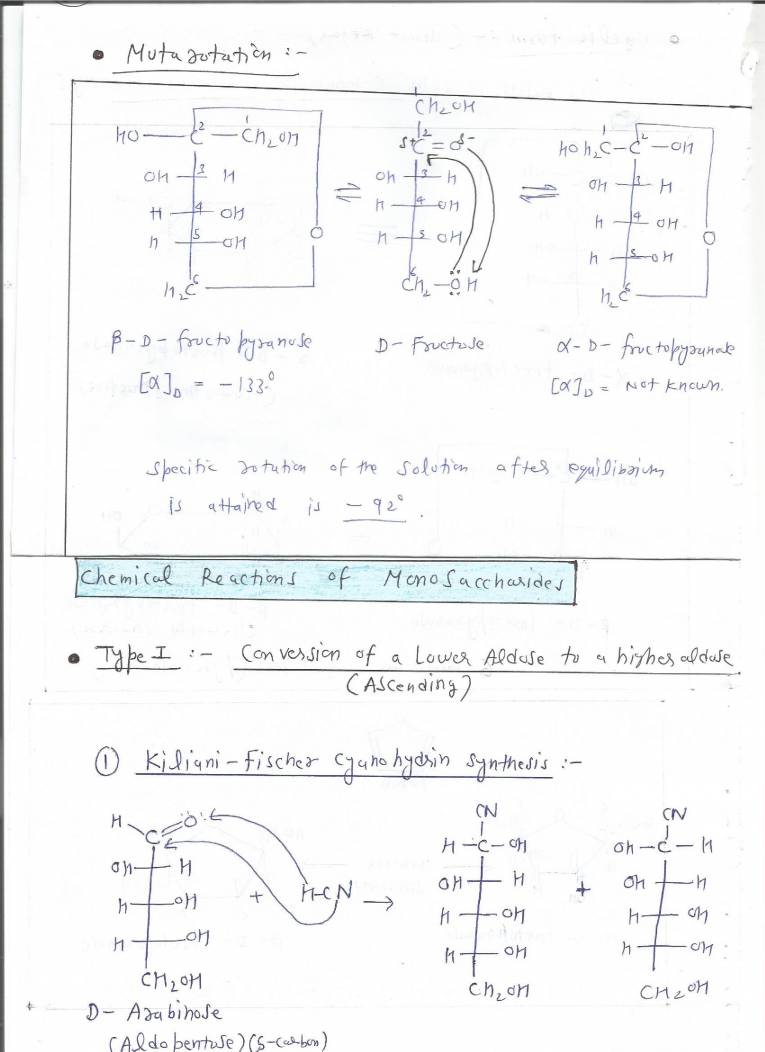 • Mutarotation :-
HO — C² — CH₂OH
OH 3 H
H 4 OH
H 5 OH
O
H₂C⁶
⇌
¹CH₂OH
δ+ ²C = O δ-
OH 3 H
H 4 OH
H 5 OH
⁶CH₂ — OH
⇌
HOH₂C¹ — C² — OH
OH 3 H
H 4 OH
H 5 OH
O
H₂C⁶
β-D-fructopyranose
D-Fructose
α-D-fructopyranose
[α]D = -133°
[α]D = Not known.
Specific rotation of the solution after equilibrium
is attained is - 92°.
Chemical Reactions of MonoSaccharides
• Type I :- Conversion of a Lower Aldose to a higher aldose
(Ascending)
① Kiliani-Fischer Cyanohydrin synthesis :-
H C = O
OH H
H OH
H OH
CH₂OH
+ H-CN →
CN
H - C - OH
OH H
H OH
H OH
CH₂OH
+
CN
OH - C - H
OH H
H OH
H OH
CH₂OH
D- Arabinose
(Aldopentose) (5-carbon)